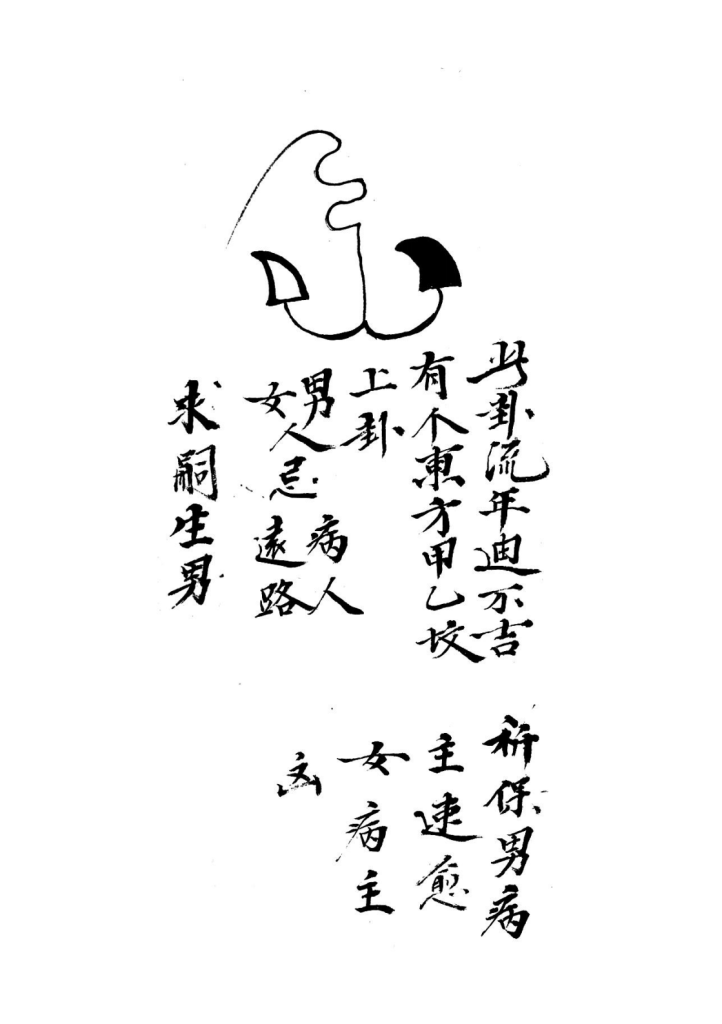 此卦流年迪不吉
有不東方甲乙坟
上卦
男人
女人忌
病人
遠路
求嗣生男
祈保男病
主速愈
女病主
凶